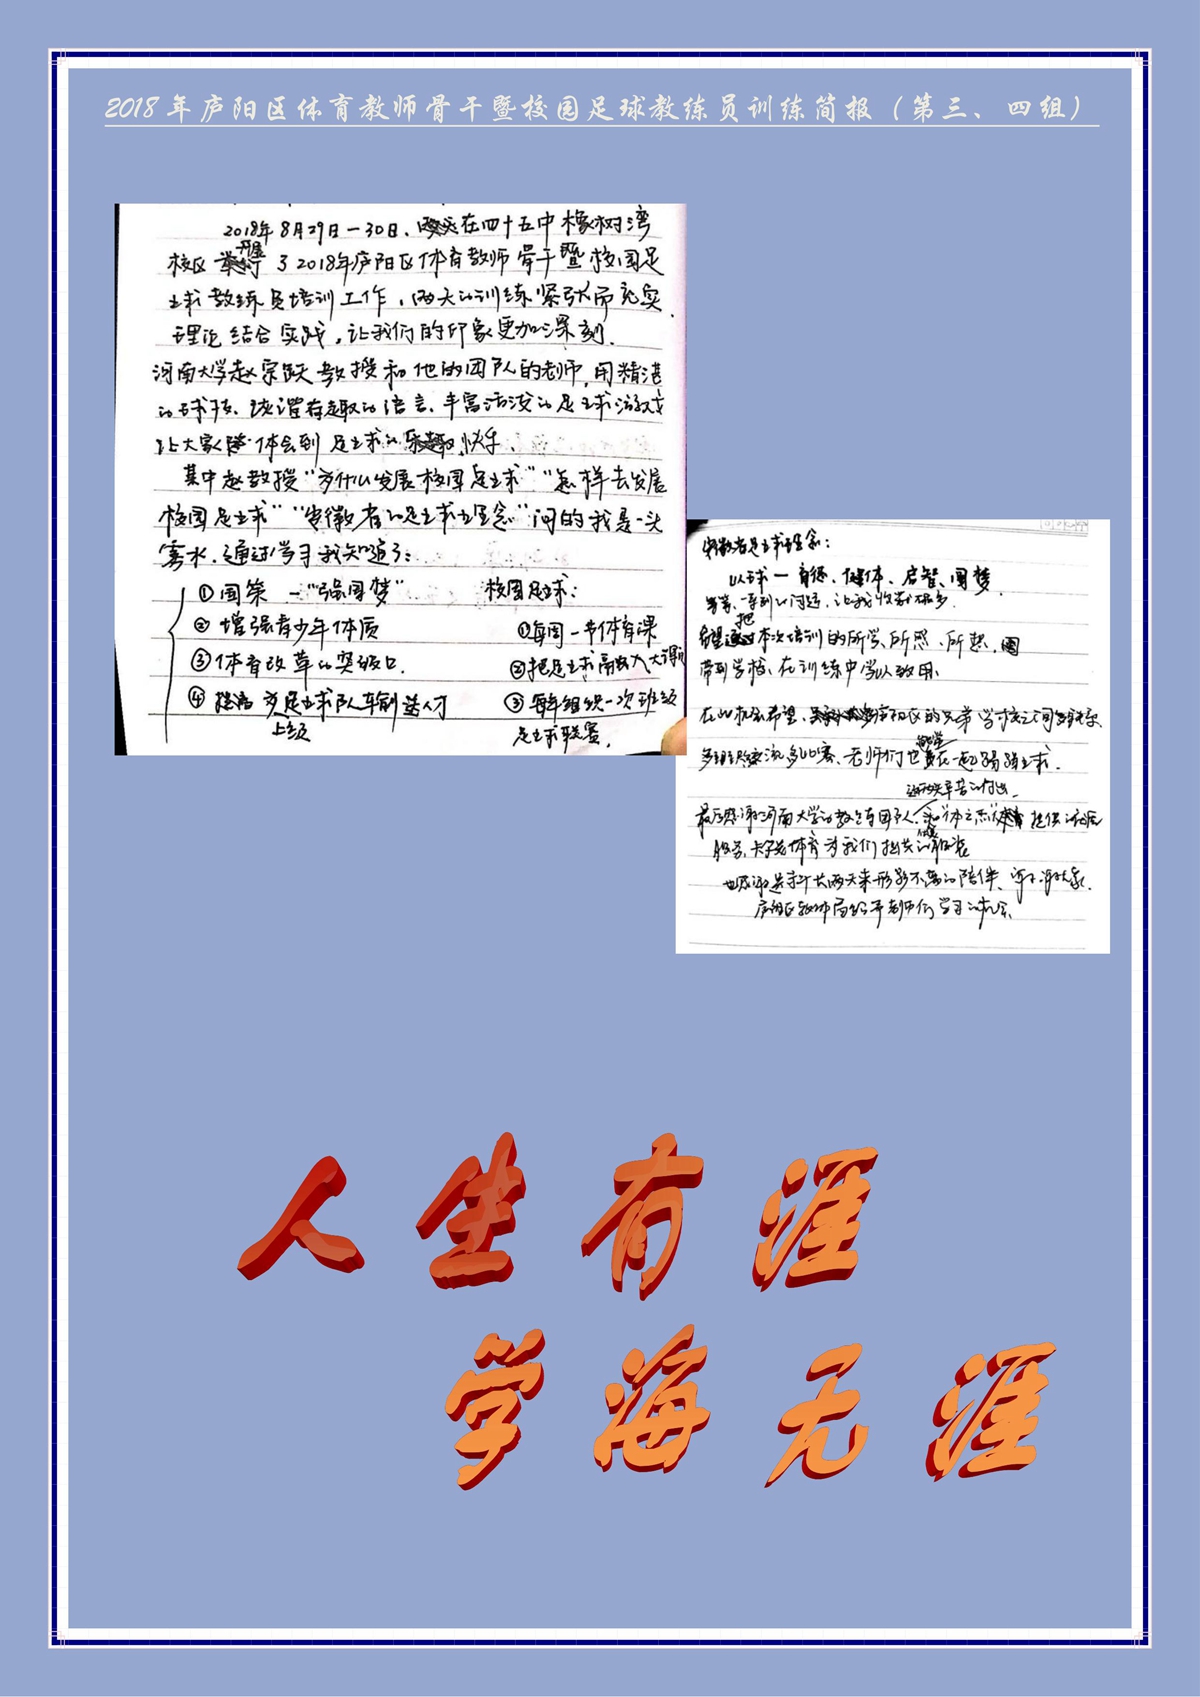 2018年庐阳区体育教师骨干暨校园足球教练员训练简报（第三、四组）
2018年8月29日-30日，在四十五中橡树湾
开展
校区 了2018年庐阳区体育教师骨干暨校园足
球教练员培训工作，两天的训练紧张而充实
理论结合实践，让我们的印象更加深刻.
河南大学赵宗跃教授和他的团队的老师，用精湛
的球技、诙谐有趣的语言、丰富活泼的足球游戏
让大家体会到足球的快乐.
其中赵教授“为什么发展校园足球”“怎样去发展
校园足球”“安徽省的足球理念”问的我是一头
雾水，通过学习我知道了：
①国策 -“强国梦” 校园足球：
②增强青少年体质 ①每周一节体育课
③体育改革的突破口. ②把足球
④ 为足球队 人才 ③每年组织一次班级
上级 足球联赛.
安徽省足球理念：
以球-育德、健体、启智、圆梦
等等，一系列的问题，让我收获很多.
把
希望本次培训的所学、所感、所想，
带到学校、在训练中学以致用.
在此机会希望， 庐阳区的兄弟学校之间多联系、
多交流多比赛、老师们也 在一起踢踢球.
这两天辛苦的付出
最后感谢河南大学的 团队. 提供
服务、 体育为我们提供的
也感谢 两天来形影不离的陪伴、谢谢大家.
庐阳区教体局给予老师们学习的机会.
人生有涯
学海无涯